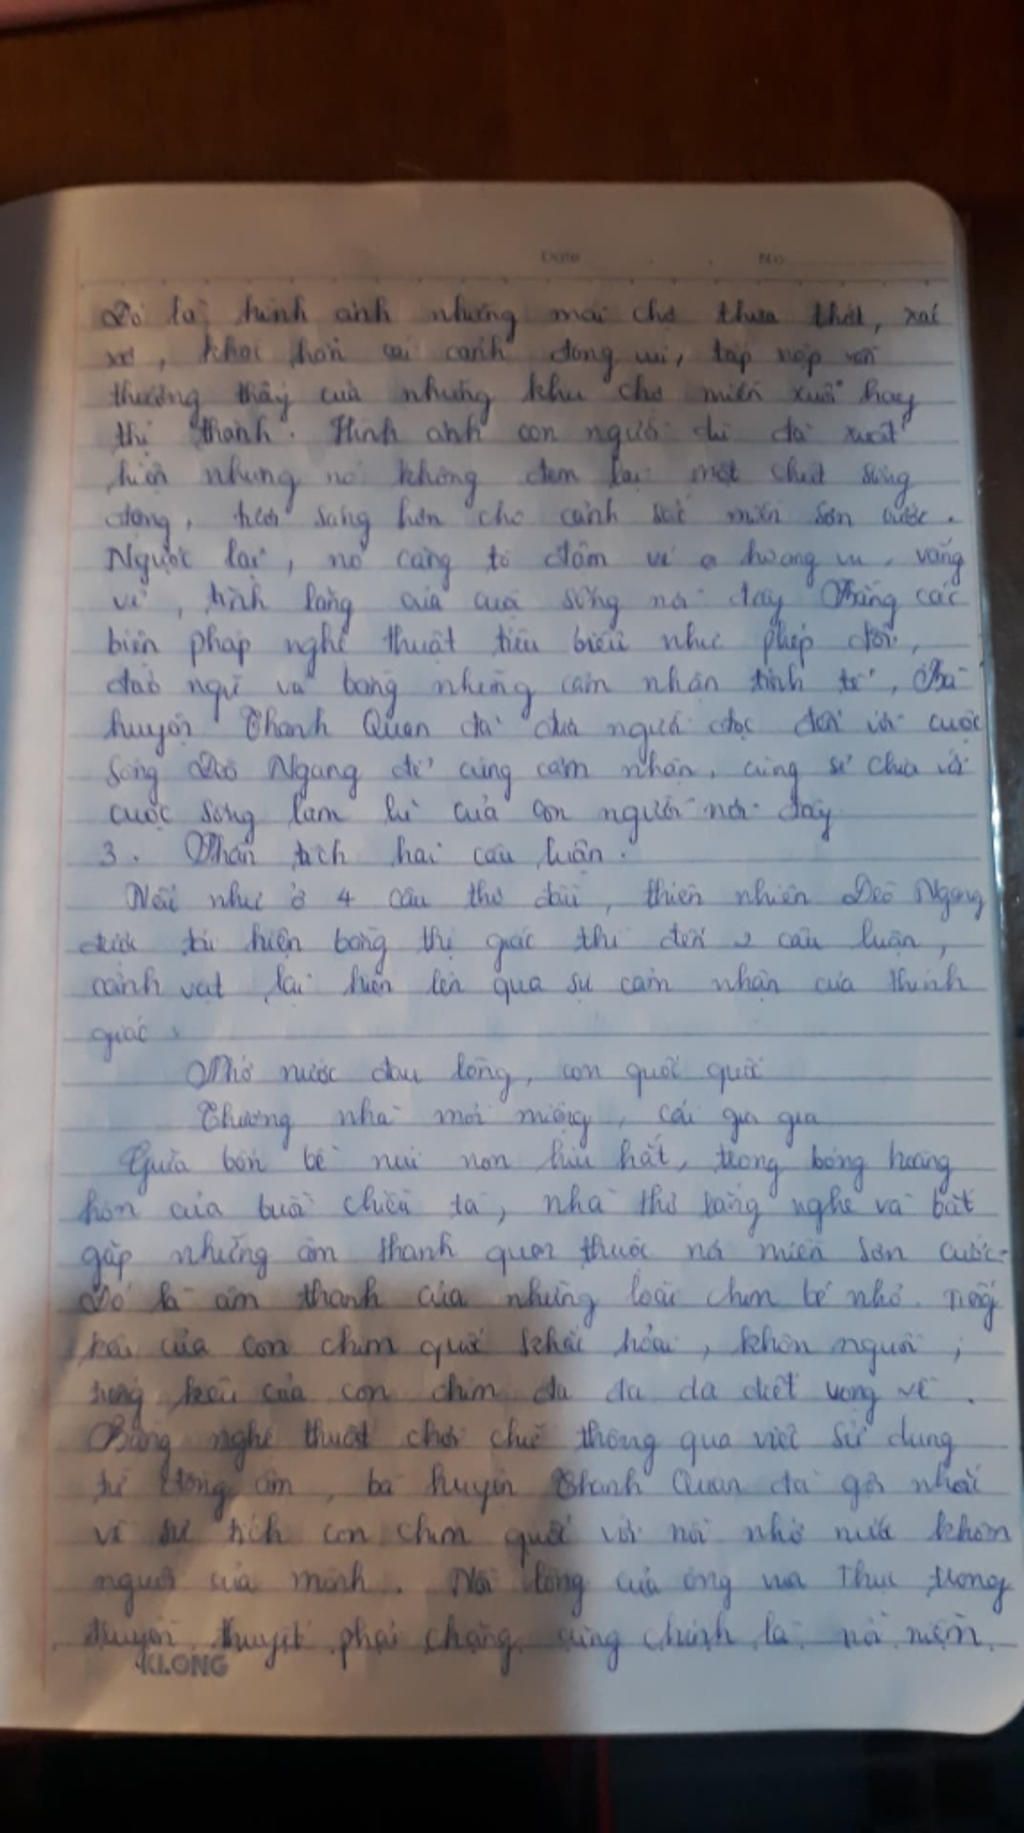 Date No
Đó là hình ảnh những mái chợ thưa thớt, xác
xơ, khác hẳn cái cảnh đông vui, tấp nập vẫn
thường thấy của những khu chợ miền xuôi hay
thị thành. Hình ảnh con người dù đã xuất
hiện nhưng nó không đem lại một chút sống
động, tươi sáng hơn cho cảnh sắc miền sơn cước.
Ngược lại, nó càng tô đậm vẻ hoang vu, vắng
vẻ, tĩnh lặng của cuộc sống nơi đây. Bằng các
biện pháp nghệ thuật tiêu biểu như phép đối,
đảo ngữ và bằng những cảm nhận tinh tế, Bà
huyện Thanh Quan đã đưa người đọc đến với cuộc
sống Đèo Ngang để cùng cảm nhận, cùng sẻ chia với
cuộc sống lam lũ của con người nơi đây
3. Phân tích hai câu luận.
Nếu như ở 4 câu thơ đầu, thiên nhiên Đèo Ngang
được tái hiện bằng thị giác thì đến 2 câu luận,
cảnh vật lại hiện lên qua sự cảm nhận của thính
giác
Nhớ nước đau lòng, con quốc quốc
Thương nhà mỏi miệng, cái gia gia
Giữa bốn bề núi non hiu hắt, trong bóng hoàng
hôn của buổi chiều tà, nhà thơ lắng nghe và bắt
gặp những âm thanh quen thuộc nơi miền sơn cước.
Đó là âm thanh của những loài chim bé nhỏ. Tiếng
kêu của con chim quốc khắc khoải, khôn nguôi;
tiếng kêu của con chim đa đa da diết vọng về.
Bằng nghệ thuật chơi chữ thông qua việc sử dụng
từ đồng âm, bà huyện Thanh Quan đã gợi nhắc
về sự tích con chim quốc với nỗi nhớ nước khôn
nguôi của mình. Nỗi lòng của ông vua Thục trong
truyền thuyết phải chăng cũng chính là nỗi niềm
KLONG